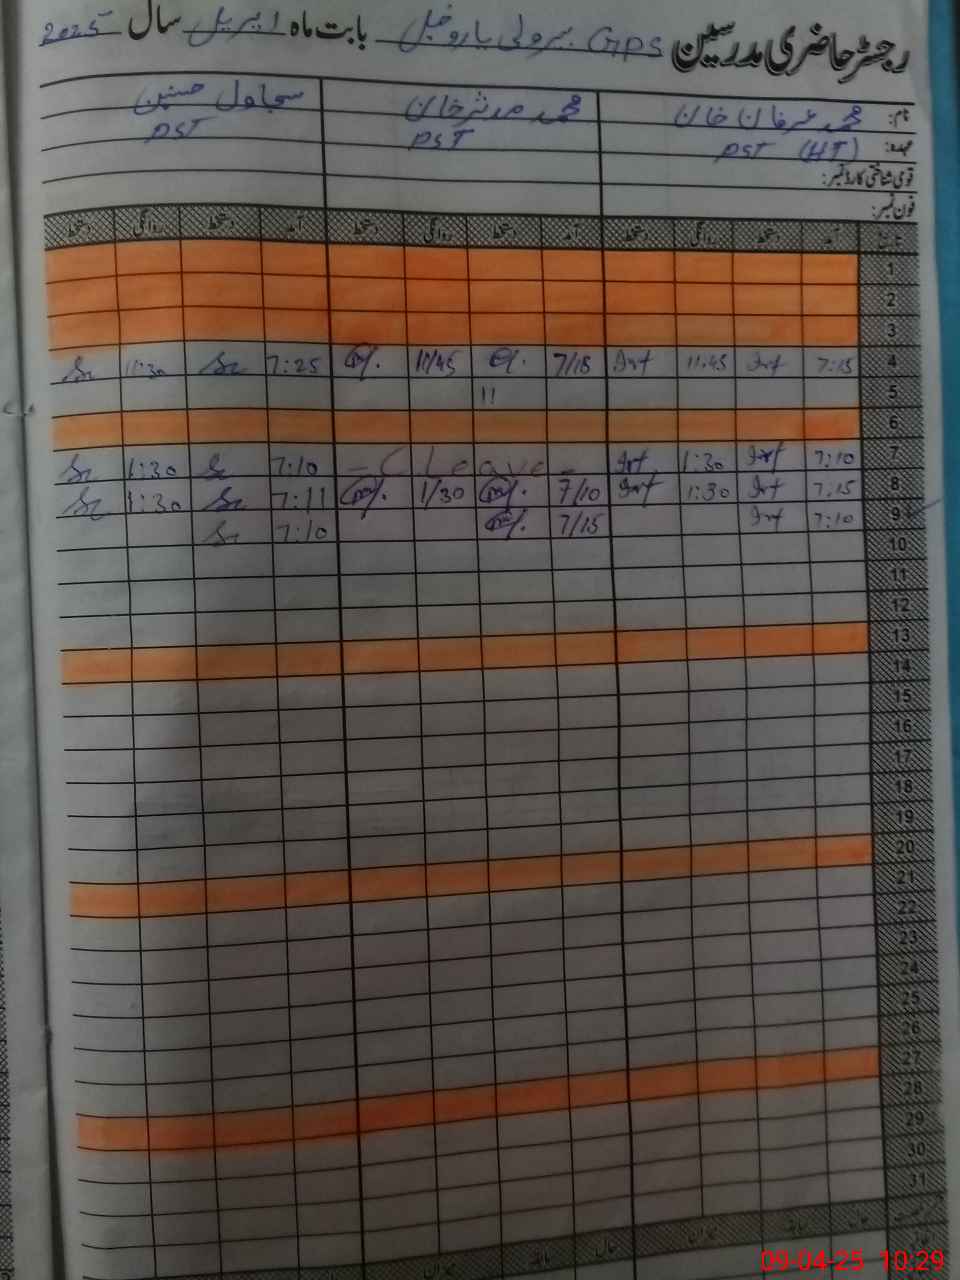 رجسٹر حاضری مدرسین GPS بیرولی بارو خیل بابت ماہ اپریل سال 2025
نام: محمد عرفان خان محمد مدثر خان سجاول حسنین
عہدہ: PST (HT) PST PST
قومی شناختی کارڈ نمبر:
فون نمبر:
تاریخ آمد دستخط روانگی دستخط آمد دستخط روانگی دستخط آمد دستخط روانگی دستخط
1
2
3
4 7:15 Irf 11:45 Irf 7/15 11/45 7:25 Sr 11:30 Sr
5 11
6
7 7:10 Irf 1:30 Irf - C Leave - 7:10 Sr 1:30 Sr
8 7:15 Irf 1:30 Irf 7/10 1/30 7:11 Sr 1:30 Sr
9 7:10 Irf 7/15 7:10 Sr
10
11
12
13
14
15
16
17
18
19
20
21
22
23
24
25
26
27
28
29
30
31
حال سابقہ میزان حال سابقہ میزان
09-04-25 10:29